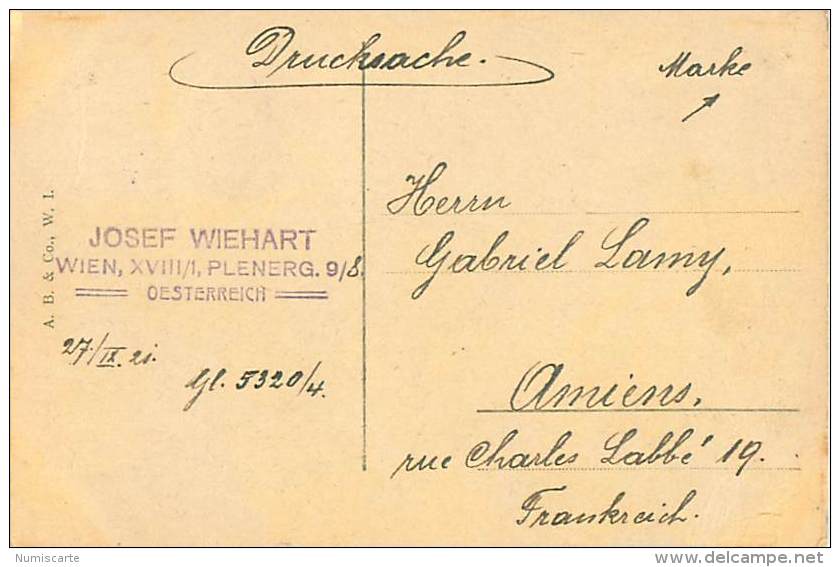 Drucksache.
Marke
A. B. & Co., W. I.
JOSEF WIEHART
WIEN, XVIII/1, PLENERG. 9/8.
OESTERREICH
27./IX. 21.
Gl. 5320/4.
Herrn
Gabriel Lamy,
Amiens,
rue Charles Labbé 19.
Frankreich.
Numiscarte
www.delcampe.net